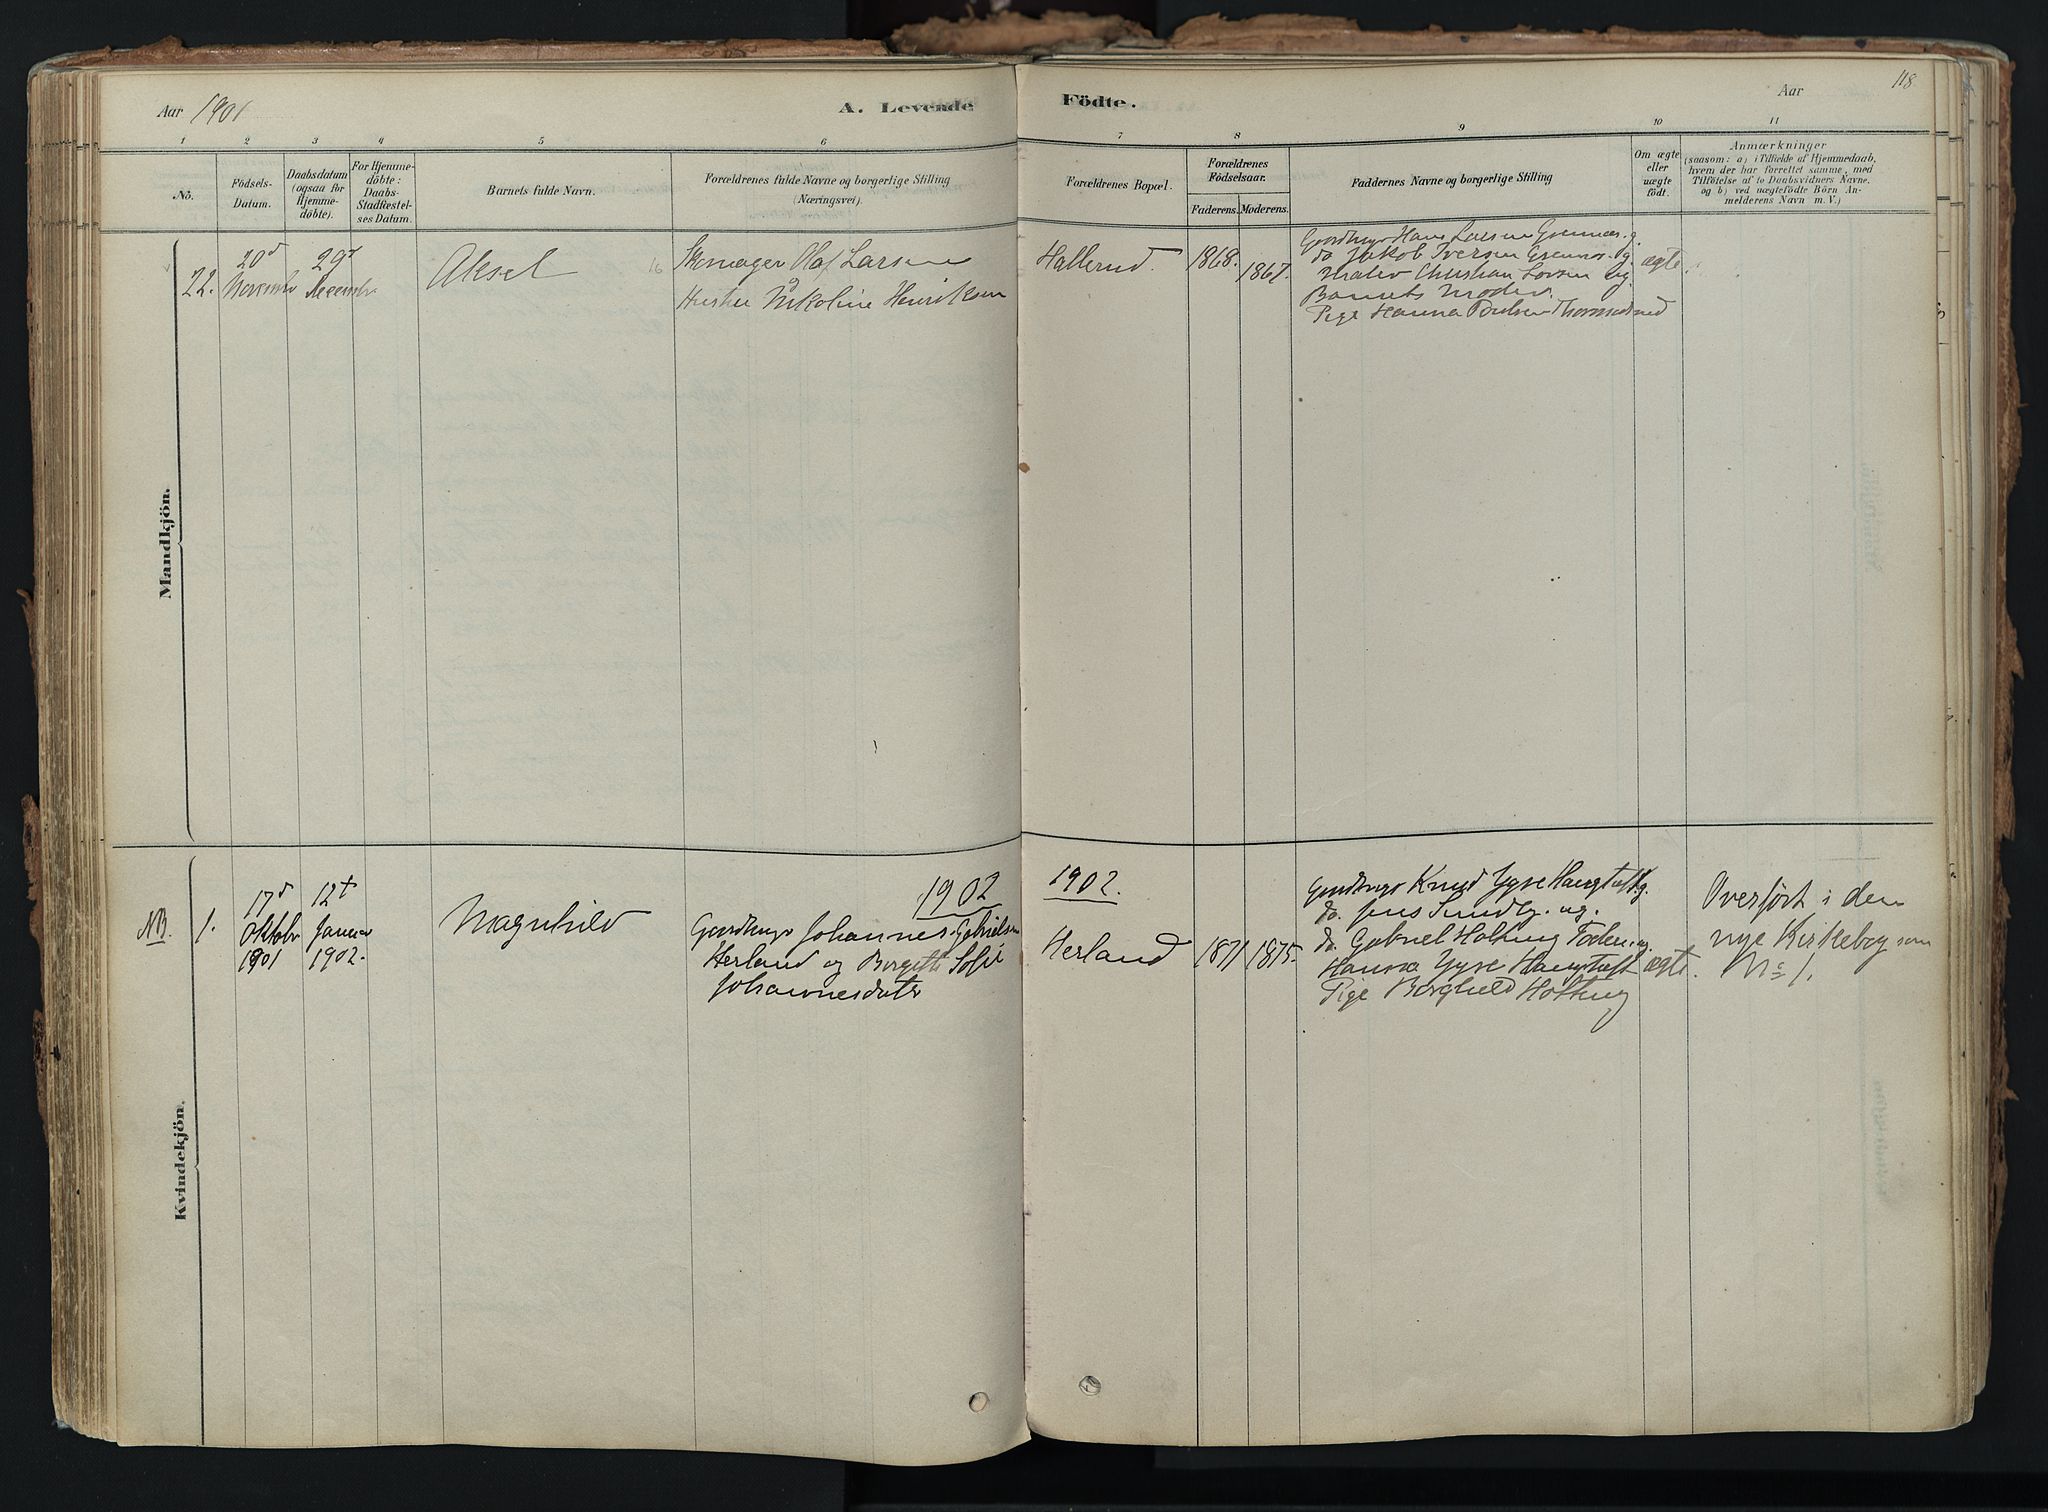 Aar 1901
A. Levende
Födte.
Aar
118
1 2 3 4 5 6 7 8 9 10 11
No.
Födsels-
Datum.
Daabsdatum
(ogsaa for
Hjemme-
döbte).
For Hjemme-
döbte:
Daabs-
Stadfæstel-
ses Datum.
Barnets fulde Navn.
Forældrenes fulde Navne og borgerlige Stilling
(Næringsvei).
Forældrenes Bopæl.
Forældrenes
Födselsaar.
Faderens. Moderens.
Faddernes Navne og borgerlige Stilling
Om ægte
eller
uægte
födt.
Anmærkninger
(saasom: a) i Tilfælde af Hjemmedaab,
hvem der har forrettet samme, med
Tilföielse af to Daabsvidners Navne.
og b) ved uægtefödte Börn An-
melderens Navn m. V.)
Mandkjön.
22.
20d
November
29d
December
Aksel
16
Skomager Olaf Larsen
Hustru Nikoline Henriksen
Hallerud.
1868.
1867.
Hans Larsen
do Jakob Iversen
Christian Larsen
Barnets Moder.
Pige Hanna
ægte.
Kvindekjön.
NB.
1.
17d
Oktober
1901
12t
Januar
1902.
Magnhild
1902
Johannes Gabrielsen
Herland og Sofie
Johannesdatter
1902.
Herland
1871
1875.
Knud
do. Jens og.
do. Gabriel
Hanna
Pige Borghild
ægte.
Overfört i den
nye Kirkebog som
No 1.